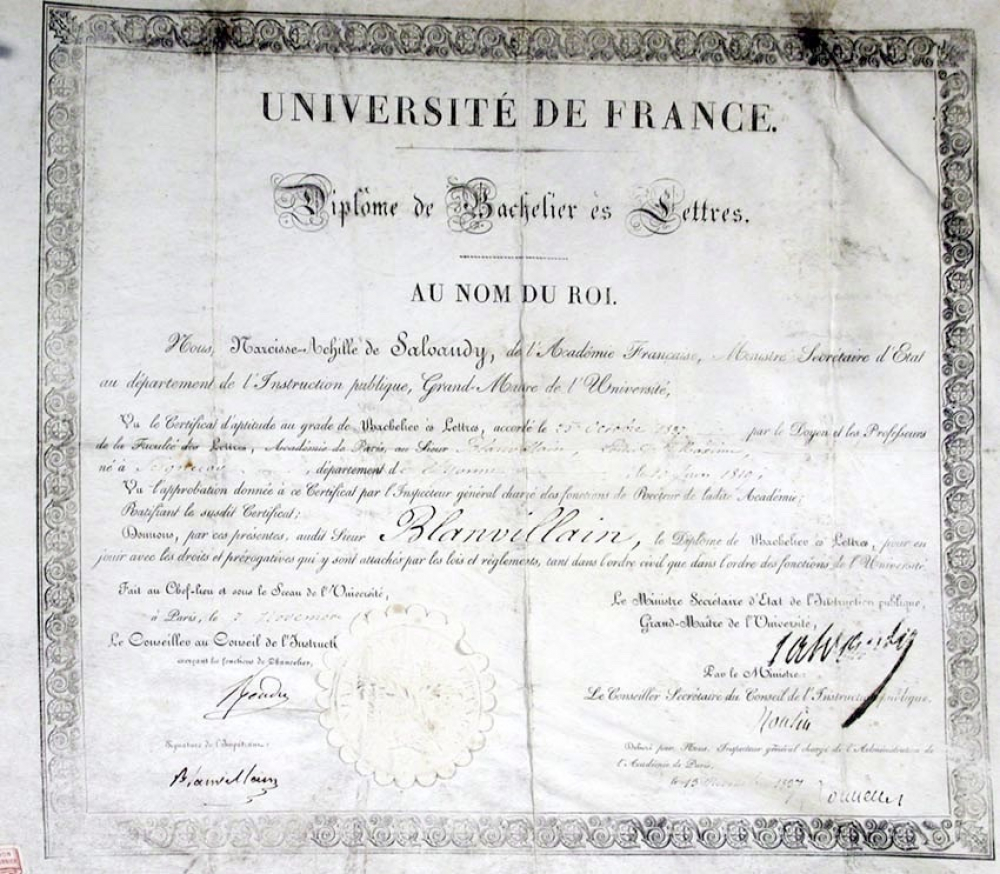 UNIVERSITÉ DE FRANCE.
Diplôme de Bachelier ès Lettres.
AU NOM DU ROI.
Nous, Narcisse-Achille de Salvandy, de l'Académie Française, Ministre Secrétaire d'Etat
au département de l'Instruction publique, Grand-Maître de l'Université,
Vu le Certificat d'aptitude au grade de Bachelier ès Lettres, accordé le Octobre par le Doyen et les Professeurs
de la Faculté des Lettres, Académie de Paris, au Sieur Blanvillain,
né à département de l'Yonne le Juin 1819,
Vu l'approbation donnée à ce Certificat par l'Inspecteur général chargé des fonctions de Recteur de ladite Académie;
Ratifiant le susdit Certificat;
Donnons, par ces présentes, audit Sieur Blanvillain, le Diplôme de Bachelier ès Lettres, pour en
jouir avec les droits et prérogatives qui y sont attachés par les lois et règlements, tant dans l'ordre civil que dans l'ordre des fonctions de l'Université.
Fait au Chef-lieu et sous le Sceau de l'Université,
à Paris, le 7 Novemb
Le Conseiller au Conseil de l'Instructi
exerçant les fonctions de Chancelier,
Signature de l'Impétrant:
Blanvillain
Le Ministre Secrétaire d'Etat de l'Instruction publique,
Grand-Maître de l'Université,
Salvandy
Par le Ministre:
Le Conseiller Secrétaire du Conseil de l'Instruction publique.
Délivré par Nous, Inspecteur général chargé de l'Administration de
l'Académie de Paris,
le 13 1837